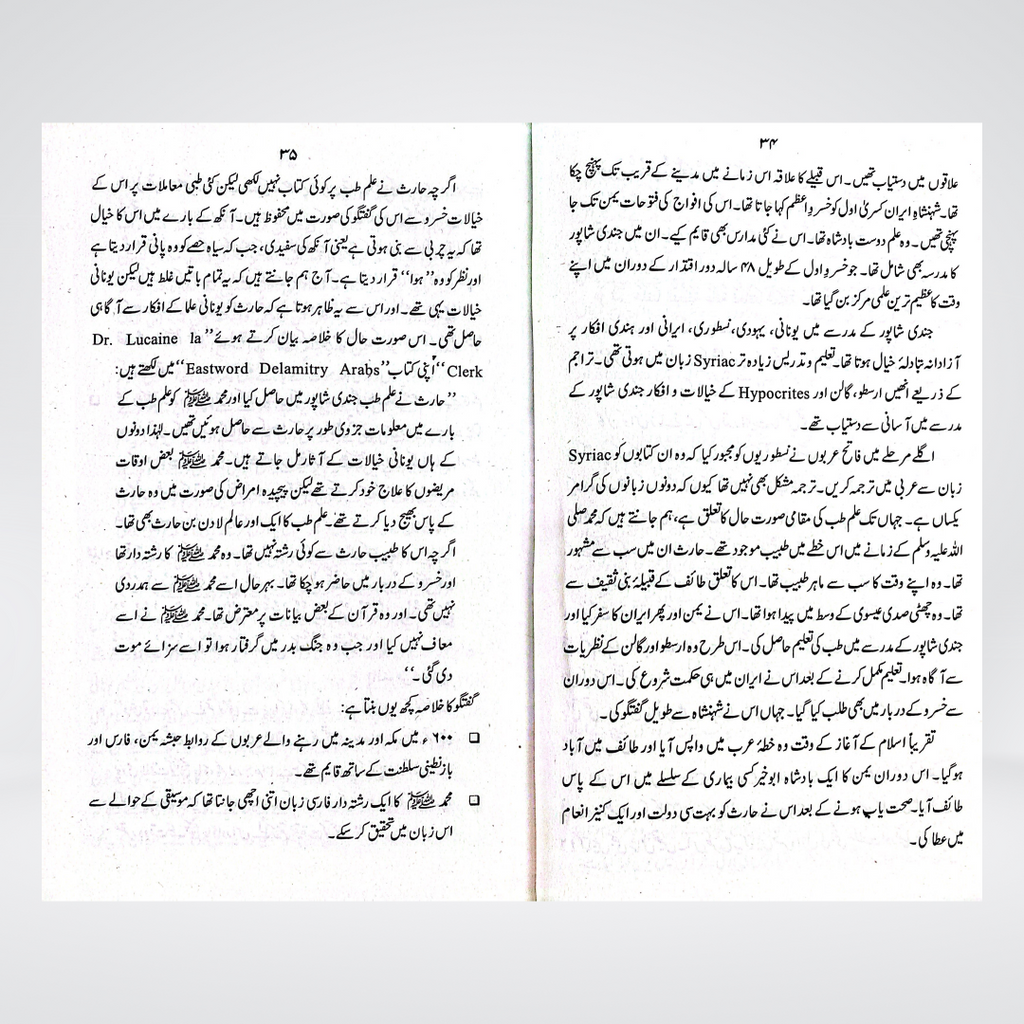 ۳۴
علاقوں میں دستیاب تھیں۔ اس قبیلے کا علاقہ اس زمانے میں مدینے کے قریب تک پہنچ چکا
تھا۔ شہنشاہِ ایران کسریٰ اول کو خسرو اعظم کہا جاتا تھا۔ اس کی افواج کی فتوحات یمن تک جا
پہنچی تھیں۔ وہ علم دوست بادشاہ تھا۔ اس نے کئی مدارس بھی قایم کیے۔ ان میں جندی شاپور
کا مدرسہ بھی شامل تھا۔ جو خسرو اول کے طویل ۴۸ سالہ دور اقتدار کے دوران میں اپنے
وقت کا عظیم ترین علمی مرکز بن گیا تھا۔
جندی شاپور کے مدرسے میں یونانی، یہودی، نسطوری، ایرانی اور ہندی افکار پر
آزادانہ تبادلۂ خیال ہوتا تھا۔ تعلیم و تدریس زیادہ تر Syriac زبان میں ہوتی تھی۔ تراجم
کے ذریعے انھیں ارسطو، گالن اور Hypocrites کے خیالات و افکار جندی شاپور کے
مدرسے میں آسانی سے دستیاب تھے۔
اگلے مرحلے میں فاتح عربوں نے نسطوریوں کو مجبور کیا کہ وہ ان کتابوں کو Syriac
زبان سے عربی میں ترجمہ کریں۔ ترجمہ مشکل بھی نہیں تھا کیوں کہ دونوں زبانوں کی گرامر
یکساں ہے۔ جہاں تک علم طب کی مقامی صورت حال کا تعلق ہے، ہم جانتے ہیں کہ محمد صلی
اللہ علیہ وسلم کے زمانے میں اس خطے میں طبیب موجود تھے۔ حارث ان میں سب سے مشہور
تھا۔ وہ اپنے وقت کا سب سے ماہر طبیب تھا۔ اس کا تعلق طائف کے قبیلۂ بنی ثقیف سے
تھا۔ وہ چھٹی صدی عیسوی کے وسط میں پیدا ہوا تھا۔ اس نے یمن اور پھر ایران کا سفر کیا اور
جندی شاپور کے مدرسے میں طب کی تعلیم حاصل کی۔ اس طرح وہ ارسطو اور گالن کے نظریات
سے آگاہ ہوا۔ تعلیم مکمل کرنے کے بعد اس نے ایران میں ہی حکمت شروع کی۔ اس دوران
سے خسرو کے دربار میں بھی طلب کیا گیا۔ جہاں اس نے شہنشاہ سے طویل گفتگو کی۔
تقریباً اسلام کے آغاز کے وقت وہ خطۂ عرب میں واپس آیا اور طائف میں آباد
ہوگیا۔ اس دوران یمن کا ایک بادشاہ ابوخیر کسی بیماری کے سلسلے میں اس کے پاس
طائف آیا۔ صحت یاب ہونے کے بعد اس نے حارث کو بہت سی دولت اور ایک کنیز انعام
میں عطا کی۔
۳۵
اگرچہ حارث نے علم طب پر کوئی کتاب نہیں لکھی لیکن کئی طبی معاملات پر اس کے
خیالات خسرو سے اس کی گفتگو کی صورت میں محفوظ ہیں۔ آنکھ کے بارے میں اس کا خیال
تھا کہ یہ چربی سے بنی ہوتی ہے یعنی آنکھ کی سفیدی، جب کہ سیاہ حصے کو وہ پانی قرار دیتا ہے
اور نظر کو وہ ’’ہوا‘‘ قرار دیتا ہے۔ آج ہم جانتے ہیں کہ یہ تمام باتیں غلط ہیں لیکن یونانی
خیالات یہی تھے۔ اور اس سے یہ ظاہر ہوتا ہے کہ حارث کو یونانی علما کے افکار سے آگاہی
حاصل تھی۔ اس صورت حال کا خلاصہ بیان کرتے ہوئے ’’Dr. Lucaine la
Clerk‘‘ اپنی کتاب ’’Eastword Delamitry Arabs‘‘ میں لکھتے ہیں:
’’حارث نے علم طب جندی شاپور میں حاصل کیا اور محمد ﷺ کو علم طب کے
بارے میں معلومات جزوی طور پر حارث سے حاصل ہوئیں تھیں۔ لہٰذا دونوں
کے ہاں یونانی خیالات کے آثار مل جاتے ہیں۔ محمد ﷺ بعض اوقات
مریضوں کا علاج خود کرتے تھے لیکن پیچیدہ امراض کی صورت میں وہ حارث
کے پاس بھیج دیا کرتے تھے۔ علم طب کا ایک اور عالم لادن بن حارث بھی تھا۔
اگرچہ اس کا طبیب حارث سے کوئی رشتہ نہیں تھا۔ وہ محمد ﷺ کا رشتہ دار تھا
اور خسرو کے دربار میں حاضر ہو چکا تھا۔ بہرحال اسے محمد ﷺ سے ہمدردی
نہیں تھی۔ اور وہ قرآن کے بعض بیانات پر معترض تھا۔ محمد ﷺ نے اسے
معاف نہیں کیا اور جب وہ جنگ بدر میں گرفتار ہوا تو اسے سزائے موت
دی گئی۔‘‘
گفتگو کا خلاصہ کچھ یوں بنتا ہے:
❑ ۶۰۰ء میں مکہ اور مدینہ میں رہنے والے عربوں کے روابط حبشہ یمن، فارس اور
بازنطینی سلطنت کے ساتھ قایم تھے۔
❑ محمد ﷺ کا ایک رشتہ دار فارسی زبان اتنی اچھی جانتا تھا کہ موسیقی کے حوالے سے
اس زبان میں تحقیق کر سکے۔